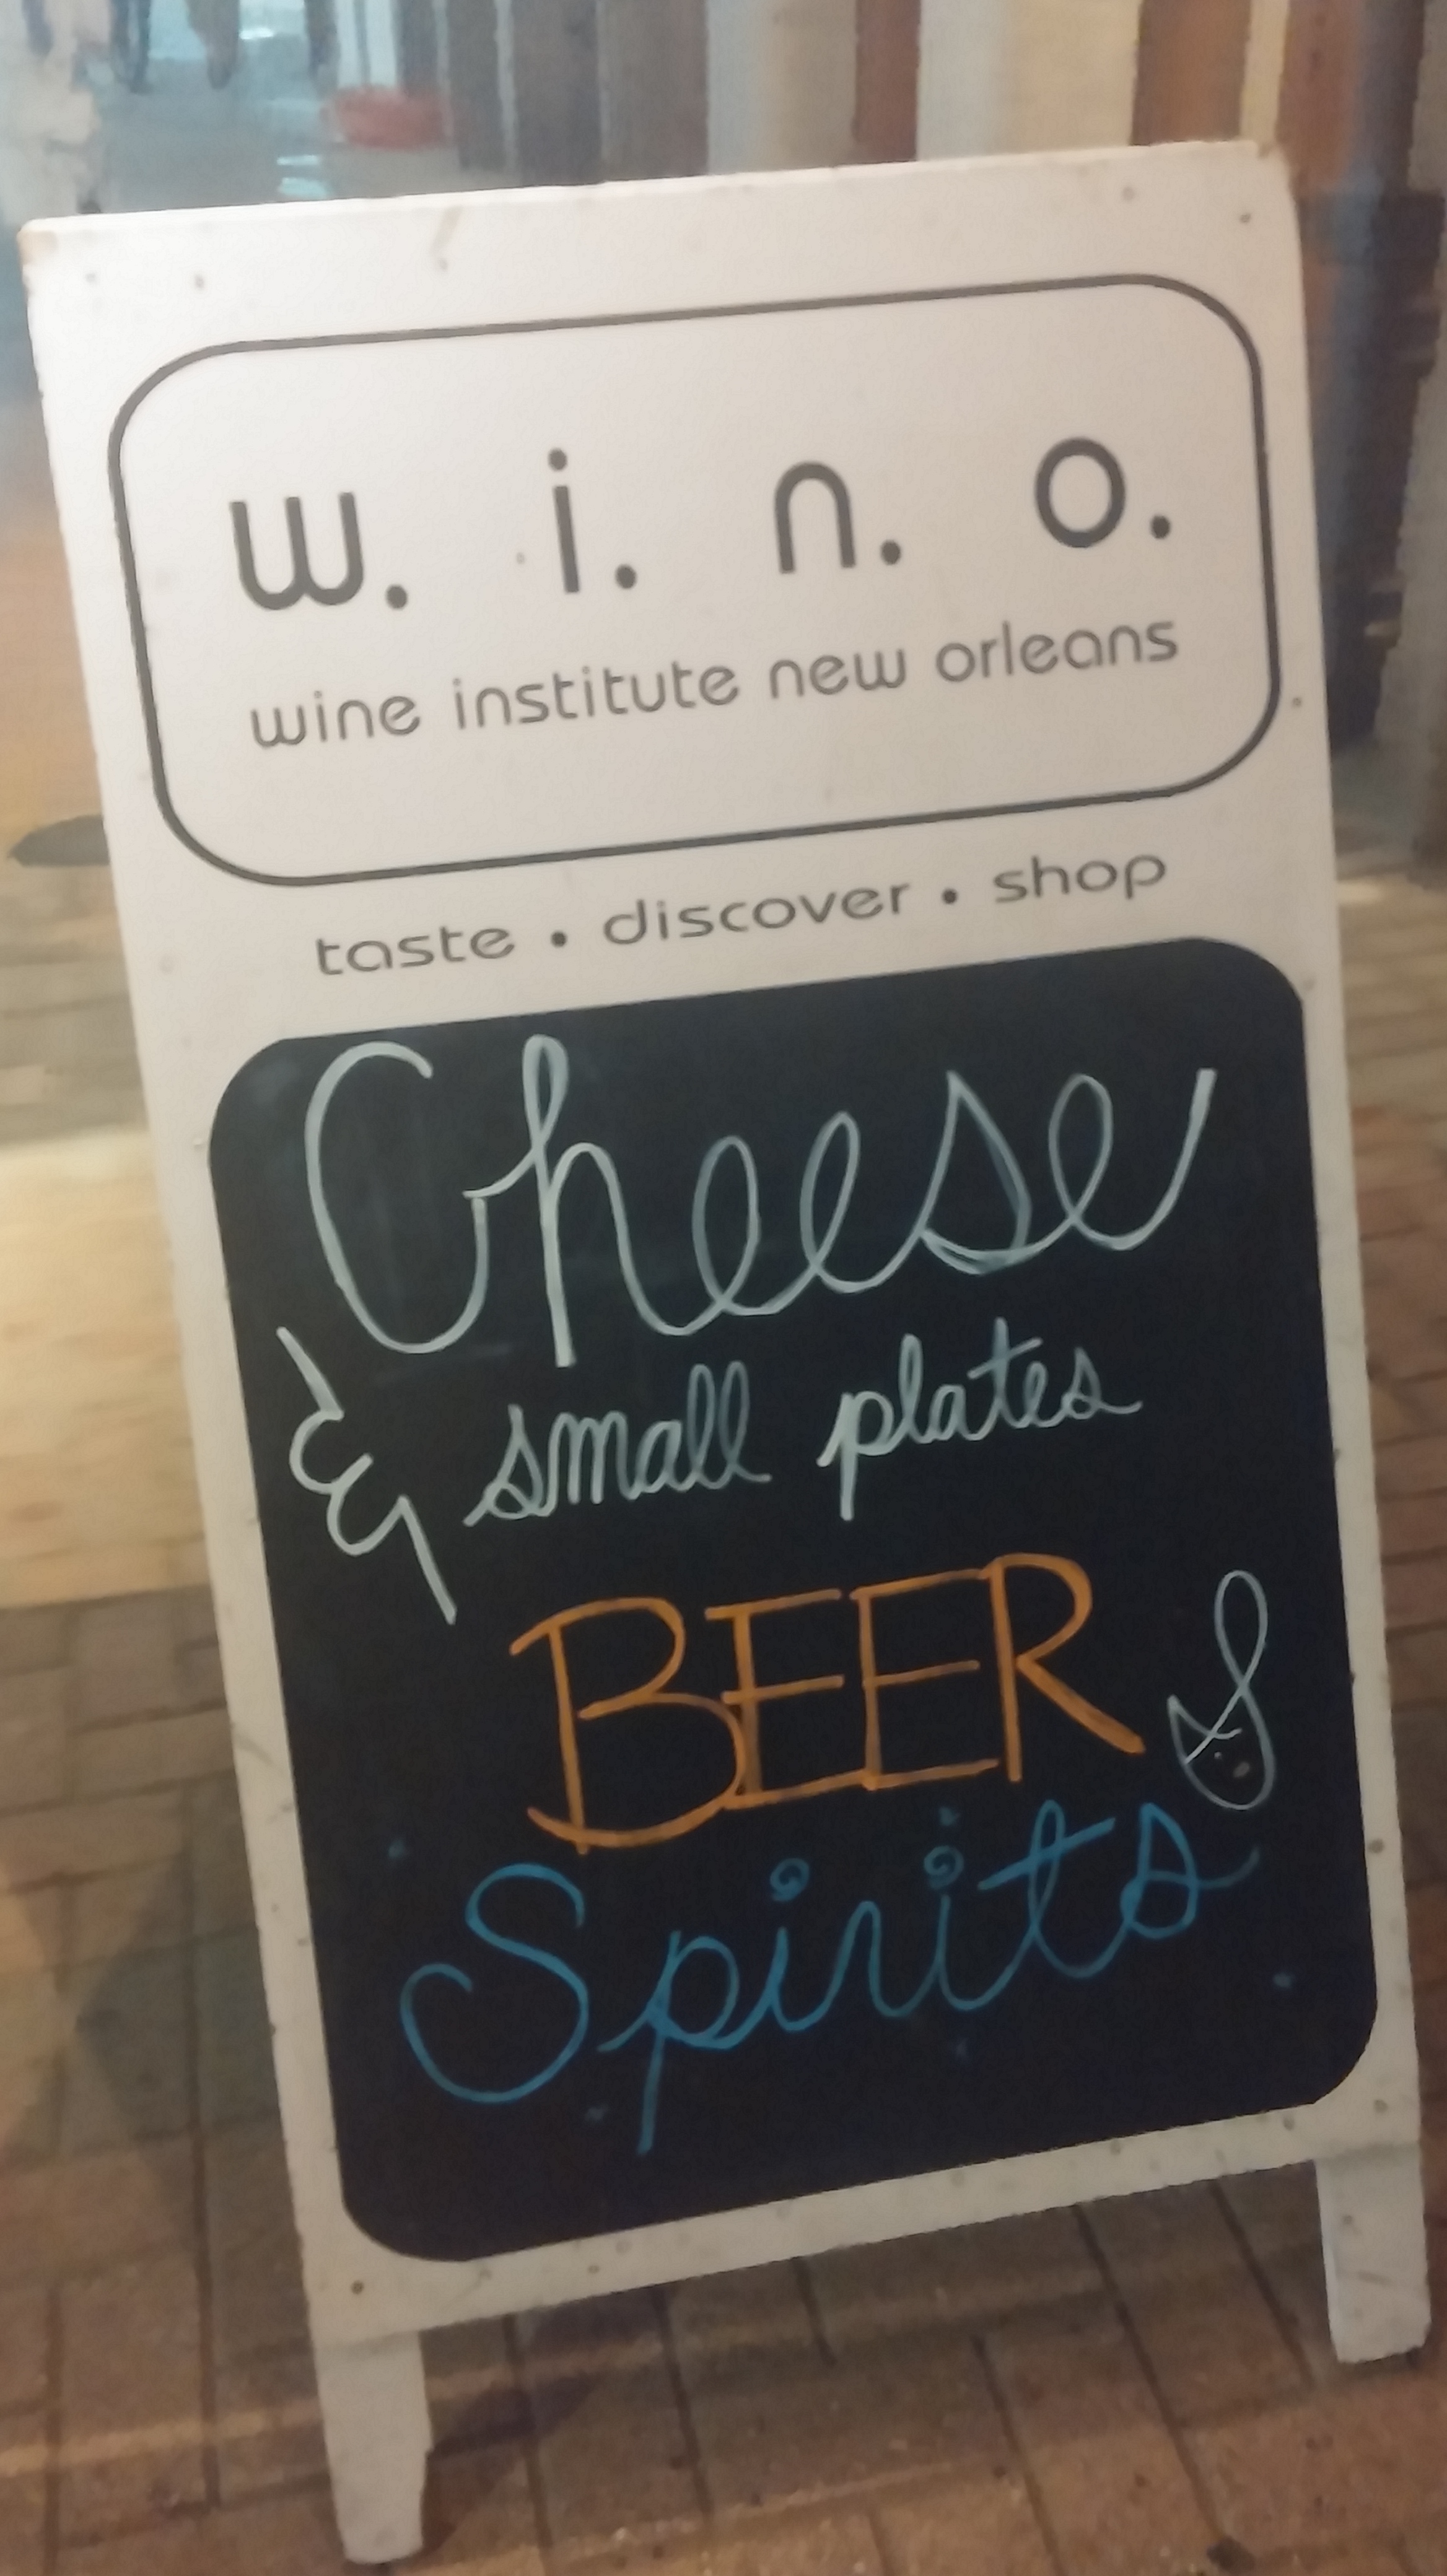 w. i. n. o.
wine institute new orleans
taste • discover • shop
Cheese
& small plates
BEER &
Spirits